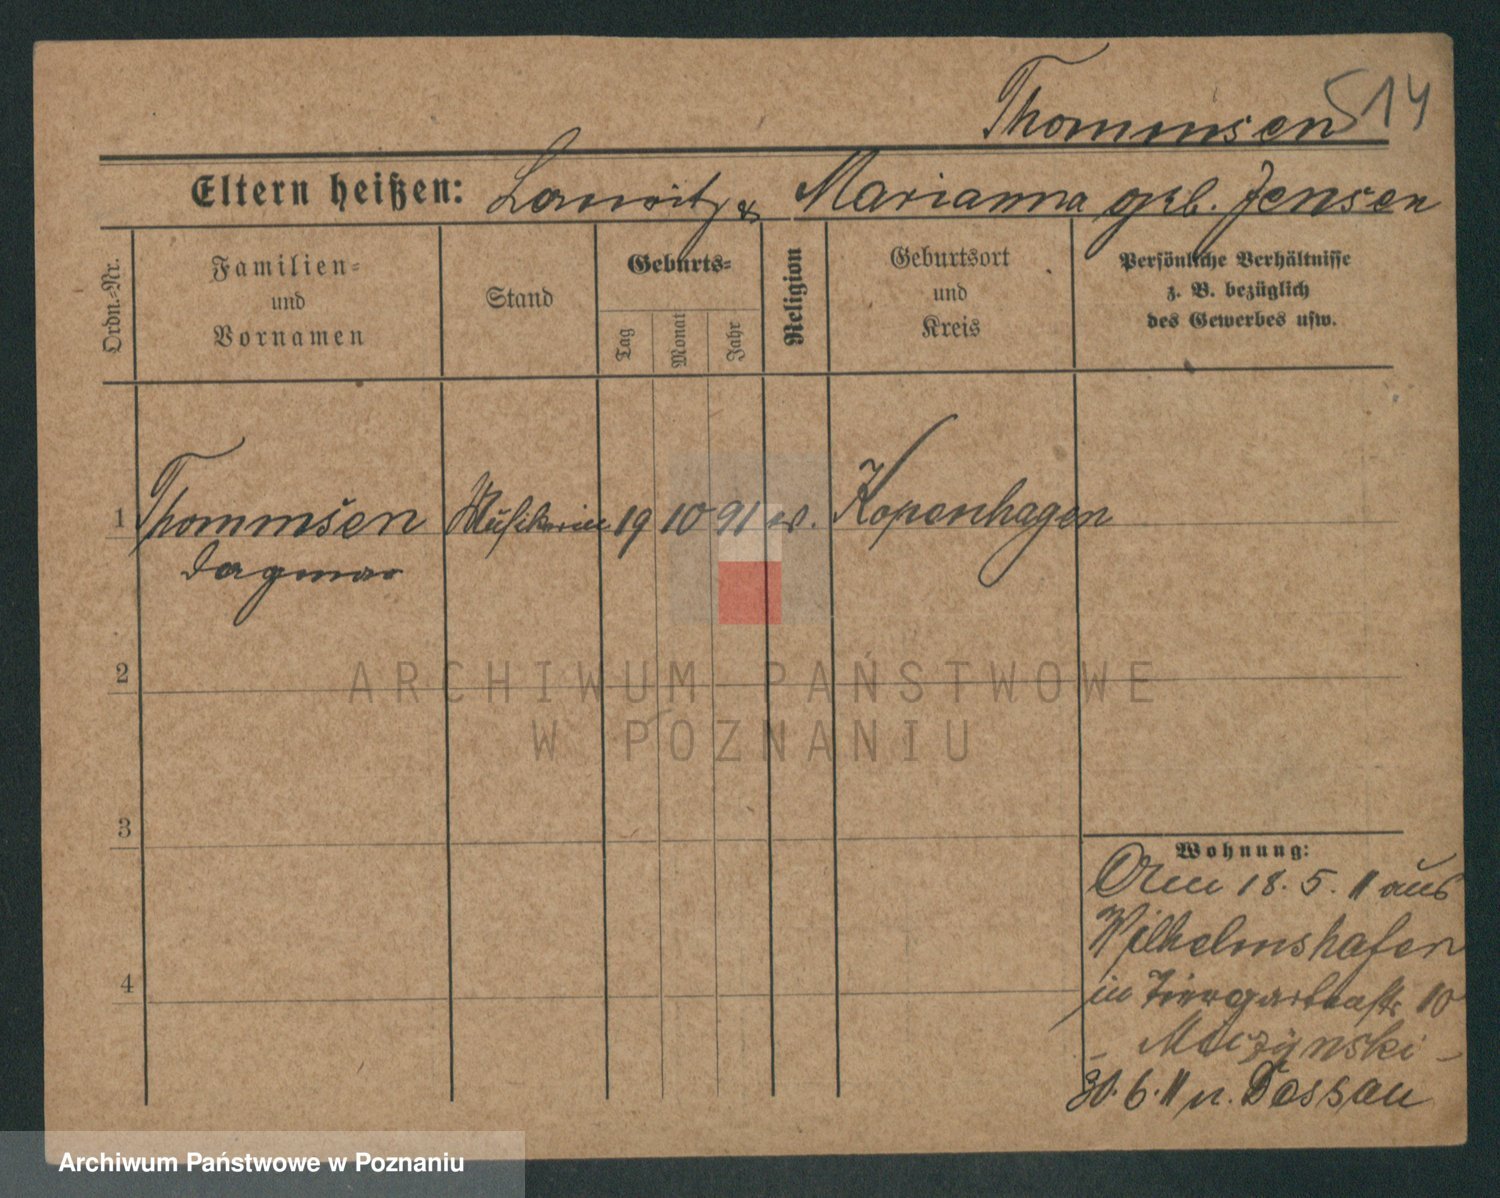 Thommsen 514
Eltern heißen: Lauritz & Marianna geb. Jensen
Ordn.-Nr.
Familien-
und
Vornamen
Stand
Geburts-
Tag
Monat
Jahr
Religion
Geburtsort
und
Kreis
Persönliche Verhältnisse
z. B. bezüglich
des Gewerbes usw.
1 Thommsen Musikerin 19 10 91 ev. Kopenhagen
Dagmar
2
3
4
Wohnung:
Am 18. 5. 11 aus
Wilhelmshafen
in Tiergartenstr 10
- Muczynski -
30. 6. 11 n. Dessau
ARCHIWUM PAŃSTWOWE
W POZNANIU
Archiwum Państwowe w Poznaniu